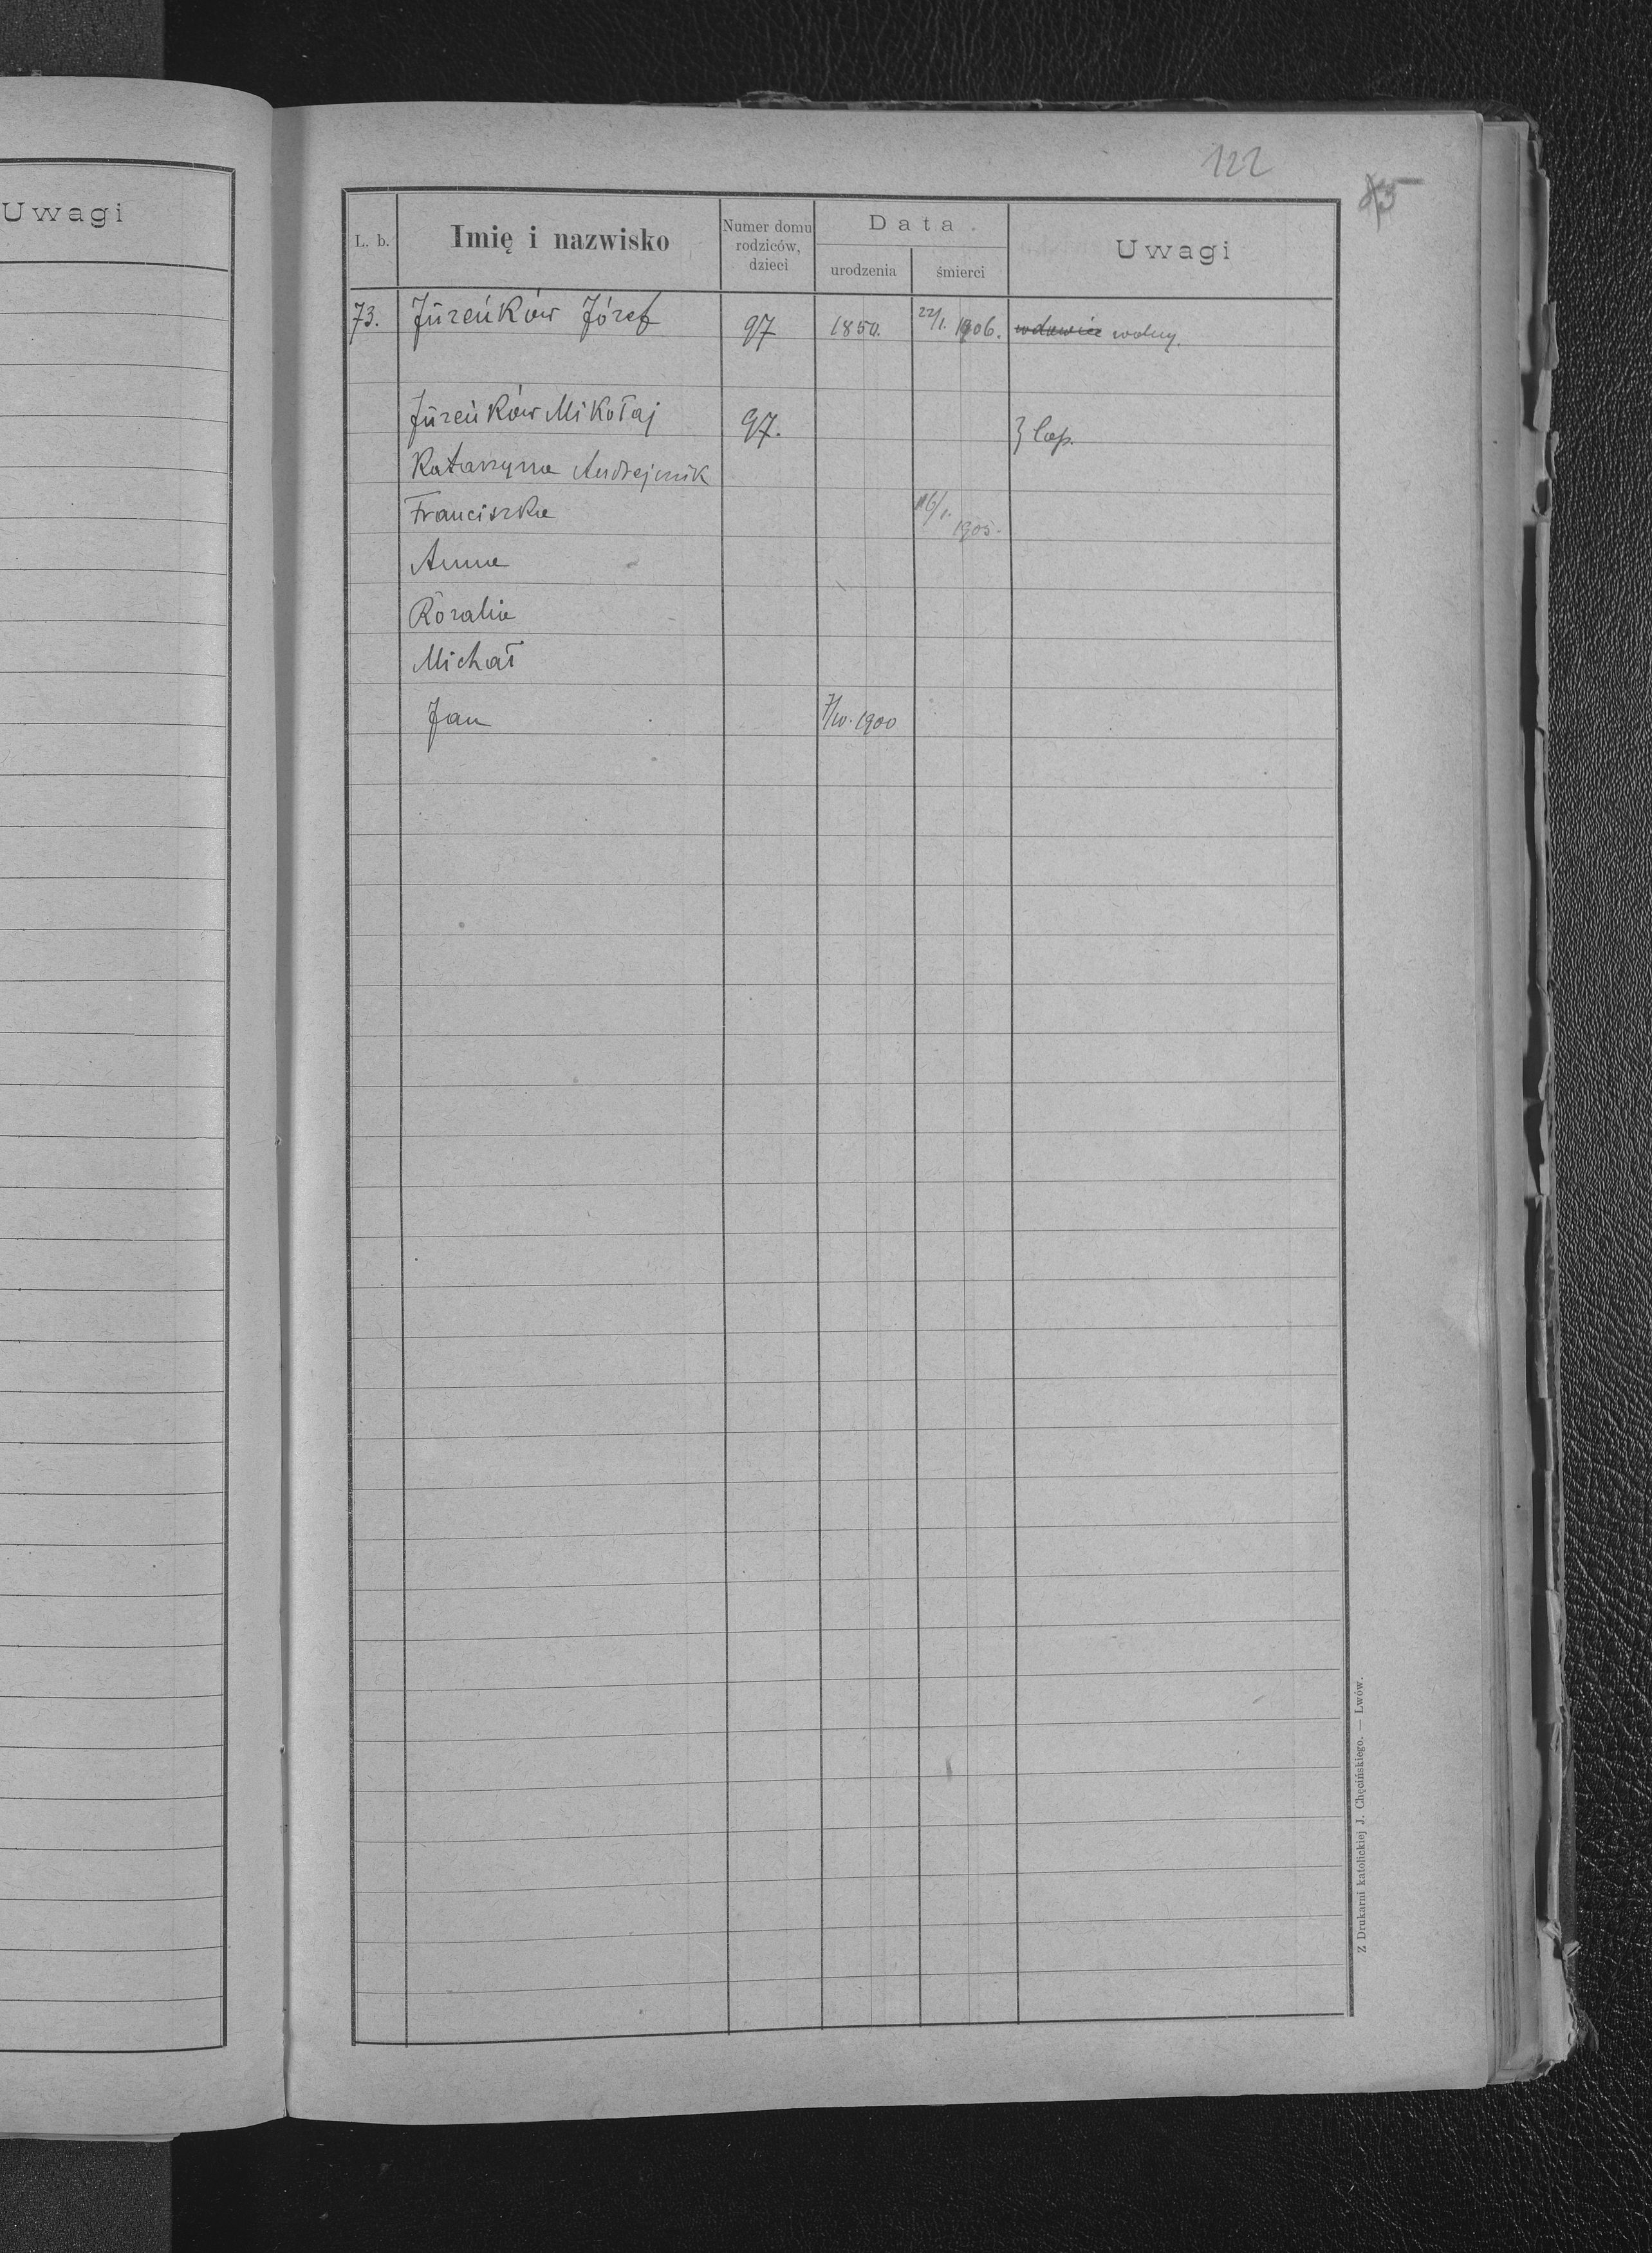 Uwagi
122
L. b. Imię i nazwisko Numer domu rodziców, dzieci Data urodzenia śmierci Uwagi
73. Jūreńków Józef 97 1850. 22/1. 1906. wdowiec wolny.
Jūreńków Mikołaj 97. } łap.
Katarzyna Andrejczuk
Franciszka 16/1. 1905.
Anna
Rozalia
Michał
Jan 7/10. 1900
Z Drukarni katolickiej J. Chęcińskiego. — Lwów.